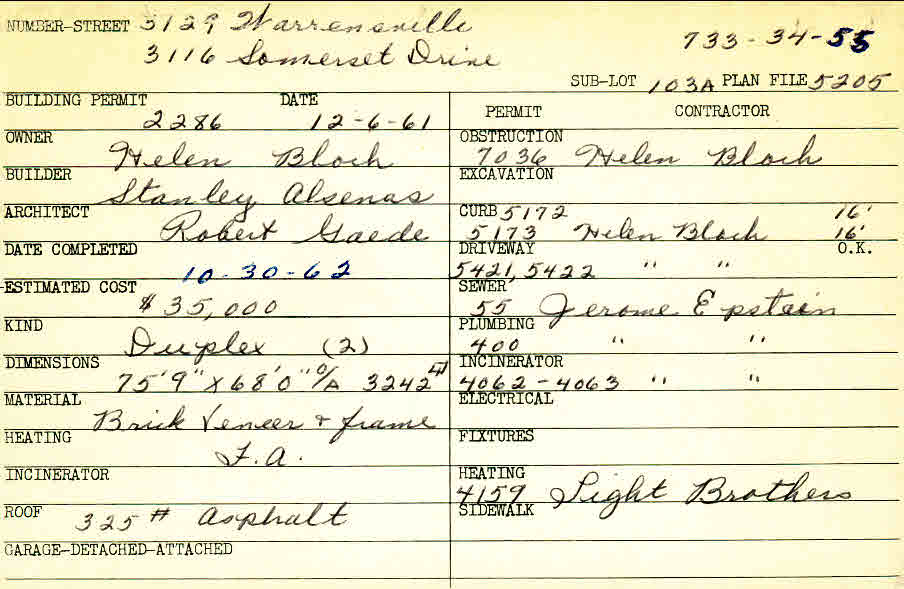 NUMBER-STREET 3129 Warrensville
3116 Somerset Drive
733-34-55
SUB-LOT 103A PLAN FILE 5205
BUILDING PERMIT DATE
2286 12-6-61
OWNER
Helen Bloch
BUILDER
Stanley Alsenas
ARCHITECT
Robert Gaede
DATE COMPLETED
10-30-62
ESTIMATED COST
$35,000
KIND
Duplex (2)
DIMENSIONS
75'9" X 68'0" O/A 3242
MATERIAL
Brick Veneer & frame
HEATING
F.A.
INCINERATOR
ROOF 325# Asphalt
GARAGE-DETACHED-ATTACHED
PERMIT CONTRACTOR
OBSTRUCTION
7036 Helen Bloch
EXCAVATION
CURB 5172 16'
5173 Helen Bloch 16'
DRIVEWAY O.K.
5421, 5422 " "
SEWER
55 Jerome Epstein
PLUMBING
400 " "
INCINERATOR
4062-4063 " "
ELECTRICAL
FIXTURES
HEATING
4159 Light Brothers
SIDEWALK